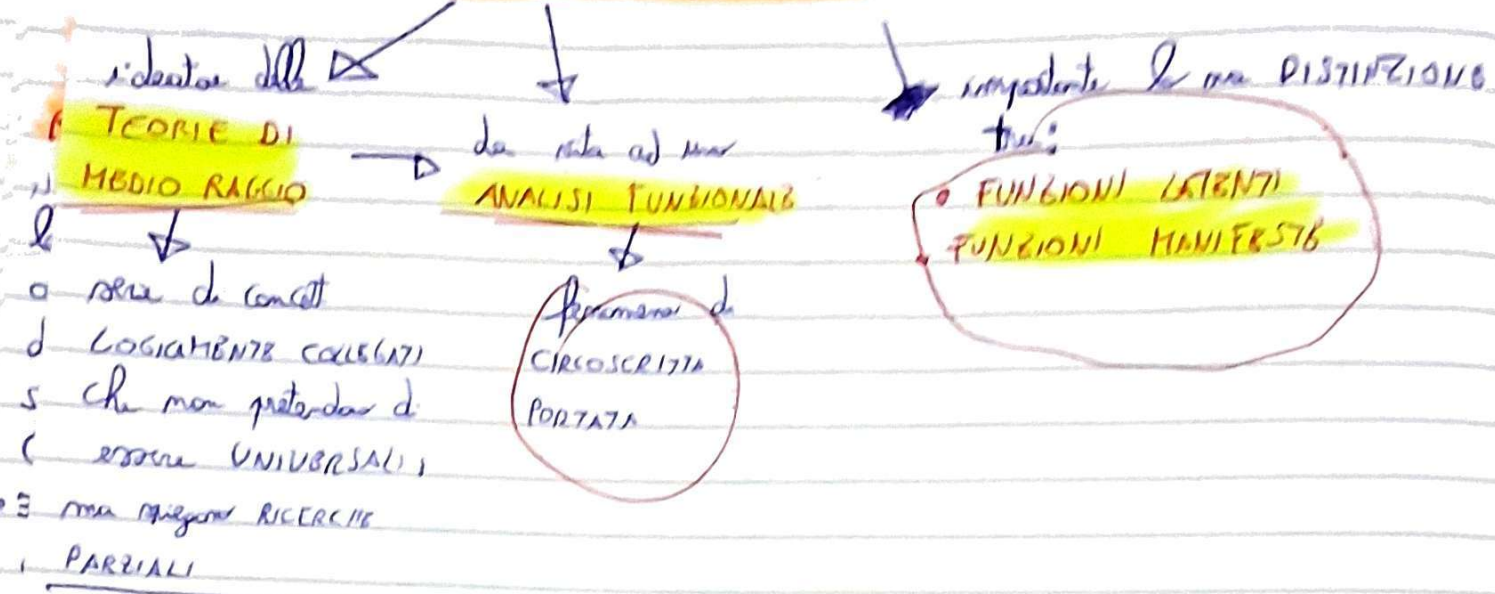 ideatore delle
TEORIE DI
MEDIO RAGGIO
serie di concetti
LOGICAMENTE COLLEGATI
che non pretendono di
essere UNIVERSALI,
ma spiegano RICERCHE
PARZIALI
da vita ad una
ANALISI FUNZIONALE
fenomeno di
CIRCOSCRITTA
PORTATA
importante la sua DISTINZIONE
tra:
• FUNZIONI LATENTI
FUNZIONI MANIFESTE